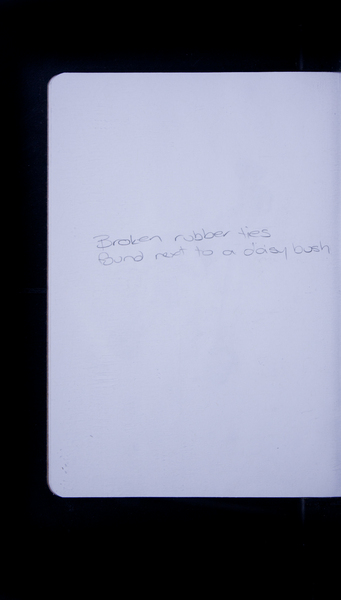 Broken rubber ties
found next to a daisy bush